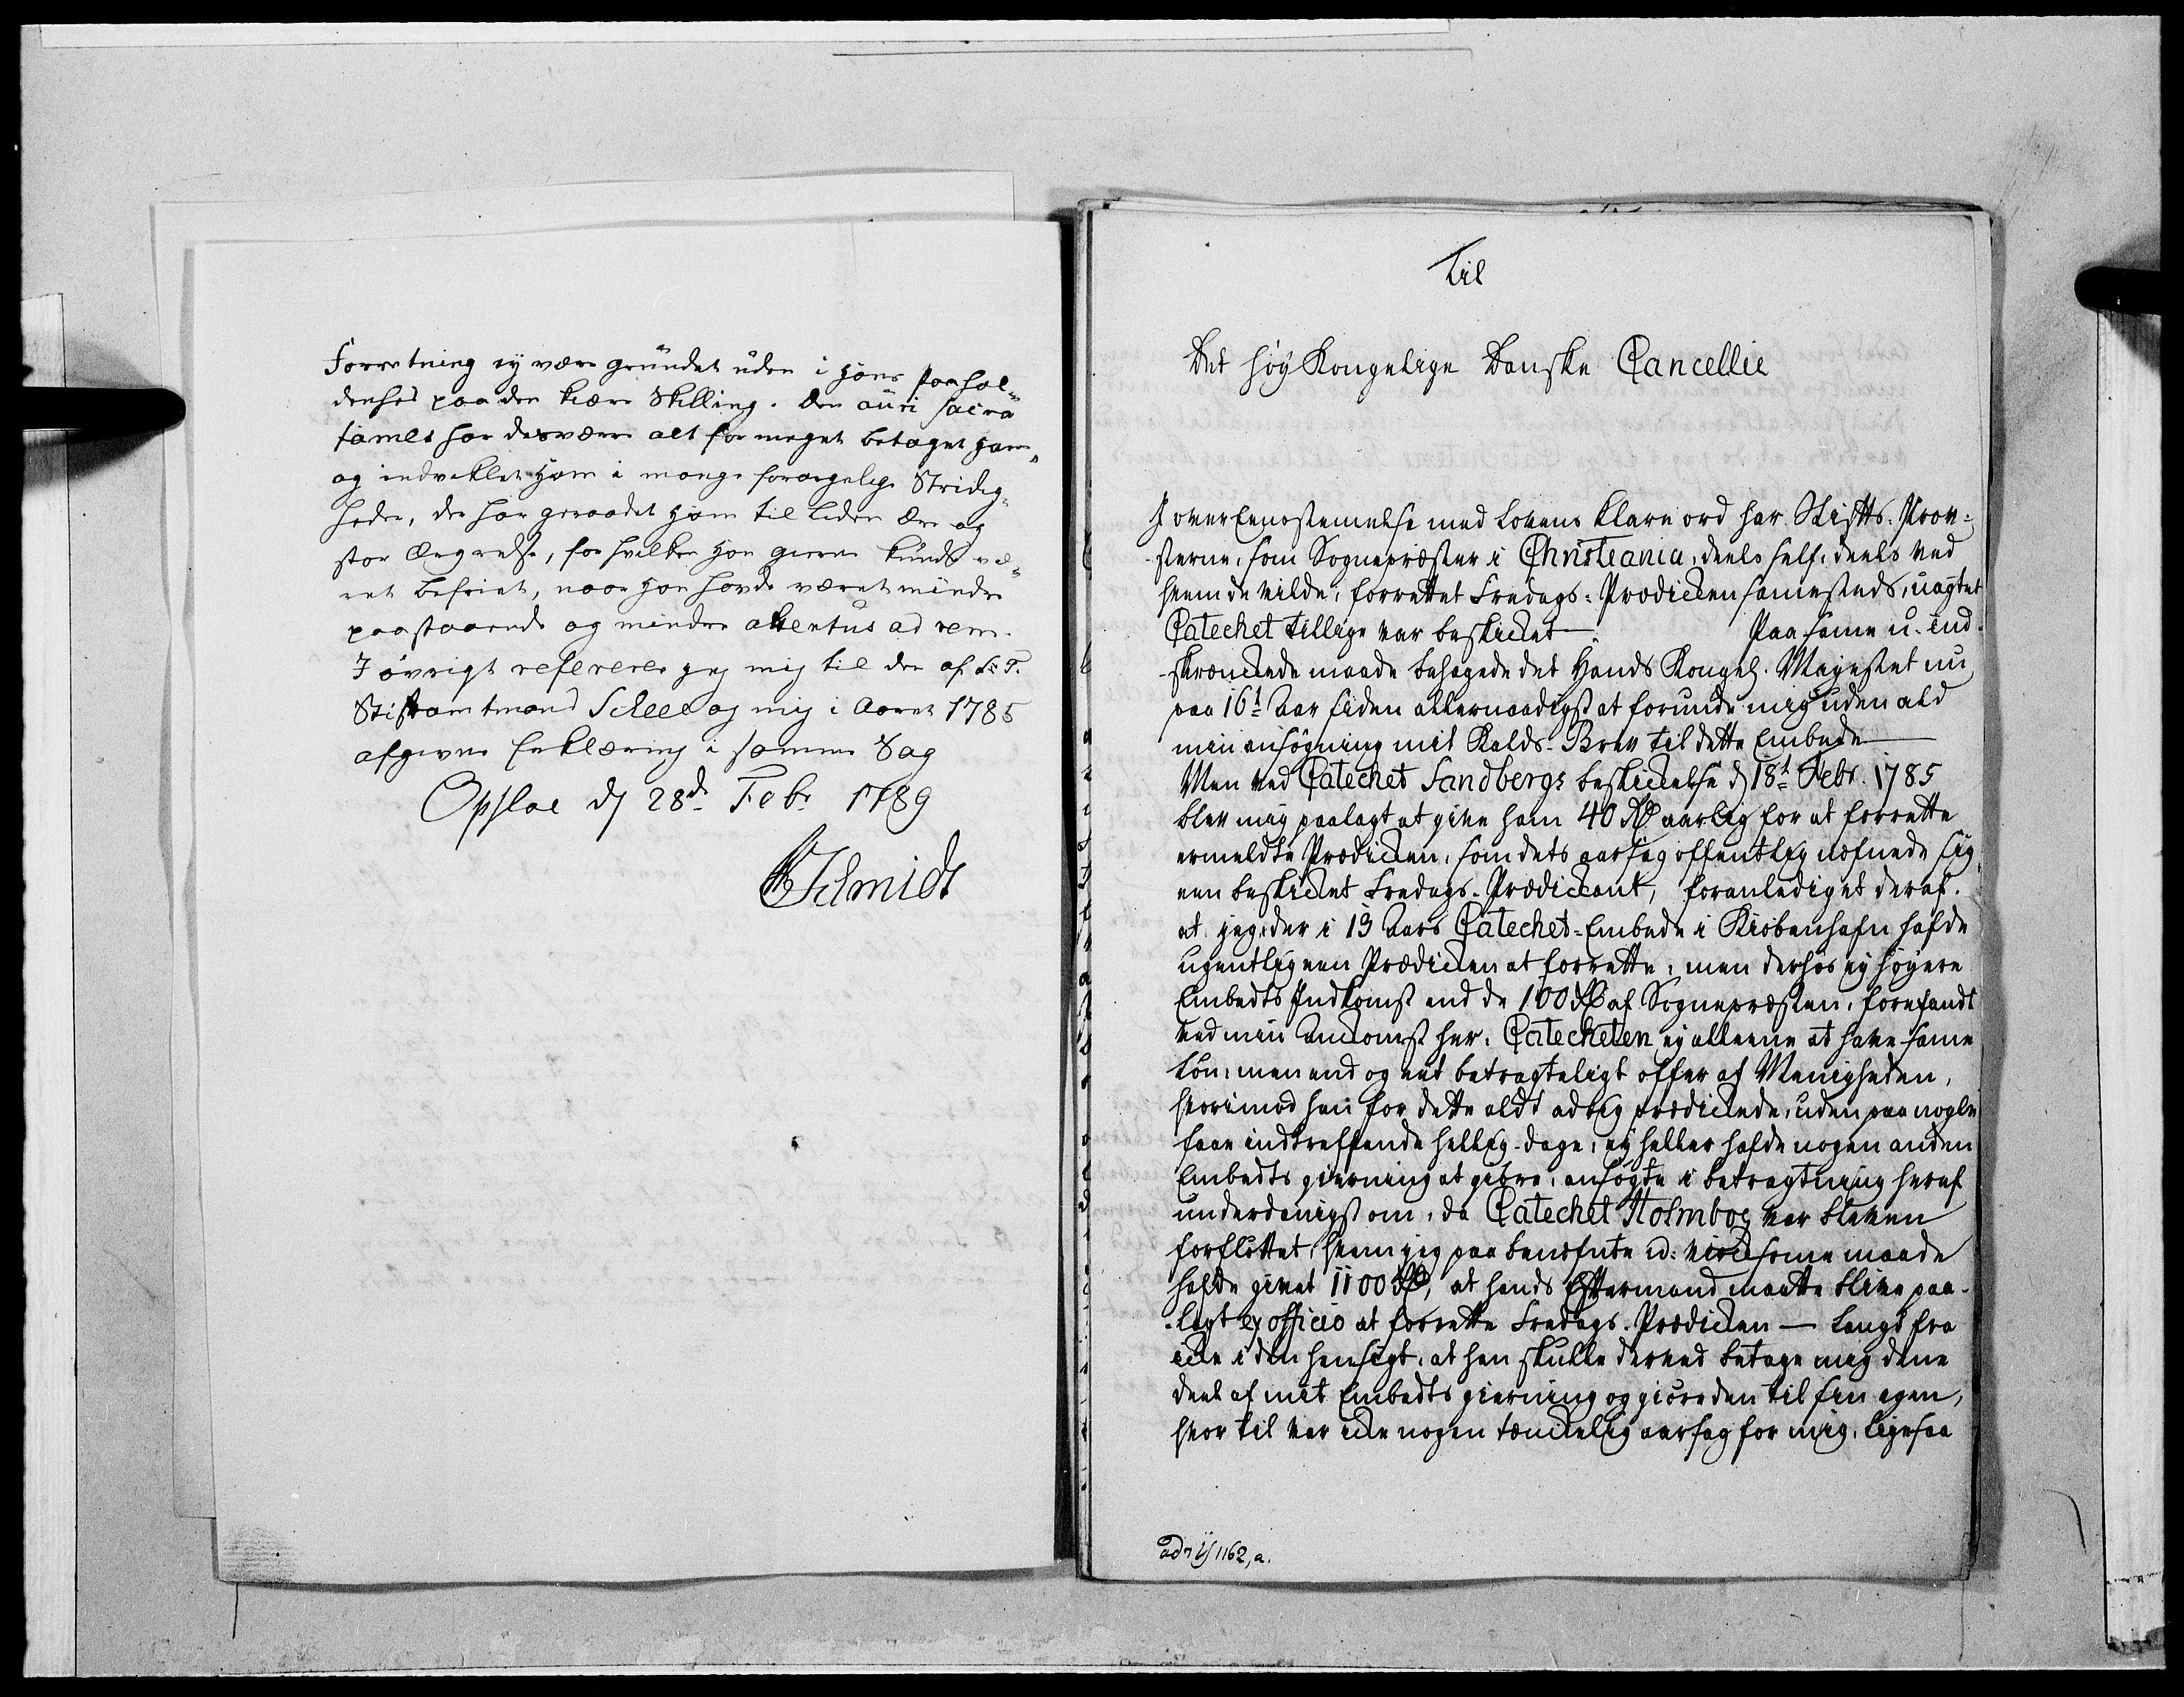 Forretning ey være grundet uden i Hans Paahol-
denhed paa den kiære Skilling. Den auri sacra
fames har desværre alt for meget betaget Ham
og indviklet Ham i mange forargelige Stridig-
heder, der har geraadet Ham til liden Ære og
stor Ærgrelse, for hvilken Han gierne kunde væ-
ret befriet, naar Han havde været mindre
paastaaende og mindre attentus ad rem.
I øvrigt refererer jeg mig til den af S: T.
Stiftamtmand Scheel og mig i Aaret 1785
afgivne Erklæring i samme Sag
Opsloe dj 28de Febr 1789
Schmidt
Til
Det høy Kongelige Danske Cancellie
I overEensstemmelse med Lovens klare ord har Stifts-Prov-
-sterne, som Sognepræster i Christiania, deels self, deels ved
hvem de vilde, forrettet Fredags-Prædicken samesteds, uagtet
Catechet tillige var beskicket. Paa same u-ind-
-skrænckede maade behagede det Hands Kongel. Mayestet nu
paa 16de Aar siden allernaadigst at forunde mig uden ald
min ansøgning mit Kalds-Brev til dette Embede
Men ved Catechet Sandbergs beskickelse dj 18de Febr. 1785
blev mig paalagt at give ham 40 Rdr aarlig for at forrette
ermeldte Prædicken, som dets aarsag offentlig nefnede sig
een beskicket Fredags-Prædiccant, foranlediget deraf.
at jeg, der i 13 Aars Catechet-Embede i Kiøbenhafn hafde
ugentlig een Prædicken at forrette, men derhos ey høyere
Embeds Indkomst end de 100 Rdr af Sognepræsten, forefandt
ved min Anckomst her, Catecheten ey alleene at have same
Løn, men end og eet betragteligt offer af Menigheden,
hvorimod han for dette aldt aldrig prædickede, uden paa nogle
faae indtreffende hellig-dage, ey heller hafde nogen anden
Embedts gierning at giøre, ansøgte i betragtning heraf
underdanigst om, da Catechet Holmboe var bleven
forflottet, hvem jeg paa benefnte u-virksomme maade
hafde givet 1100 Rdr, at hands Eftermand maatte blive paa-
-lagt ex officio at forrette Fredags-Prædicken — Langt fra
icke i den hensigt, at han skulle derved betage mig dene
deel af mit Embedts gierning og giøre den til sin egen,
hvor til var icke nogen tænckelig aarsag for mig, ligesaa
ad 1162, a.